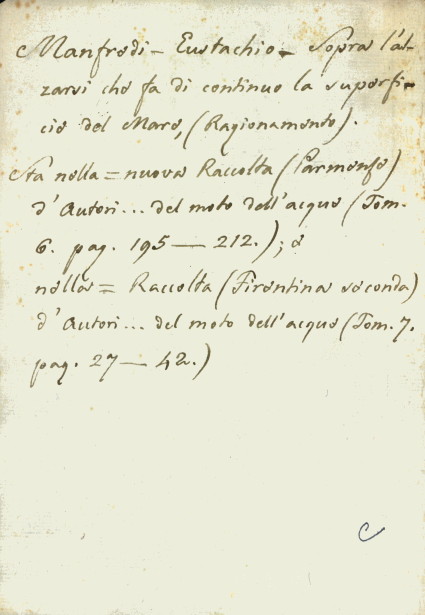 Manfredi - Eustachio - Sopra l'al-
zarsi che fa di continuo la superfi-
cie del Mare, (Ragionamento).
Sta nella = nuova Raccolta (Parmense)
d'Autori... del moto dell'acque (Tom.
6. pag. 195 — 212.); e
nella = Raccolta (Firentina seconda)
d'Autori... del moto dell'acque (Tom. 7.
pag. 27 — 42.)
C